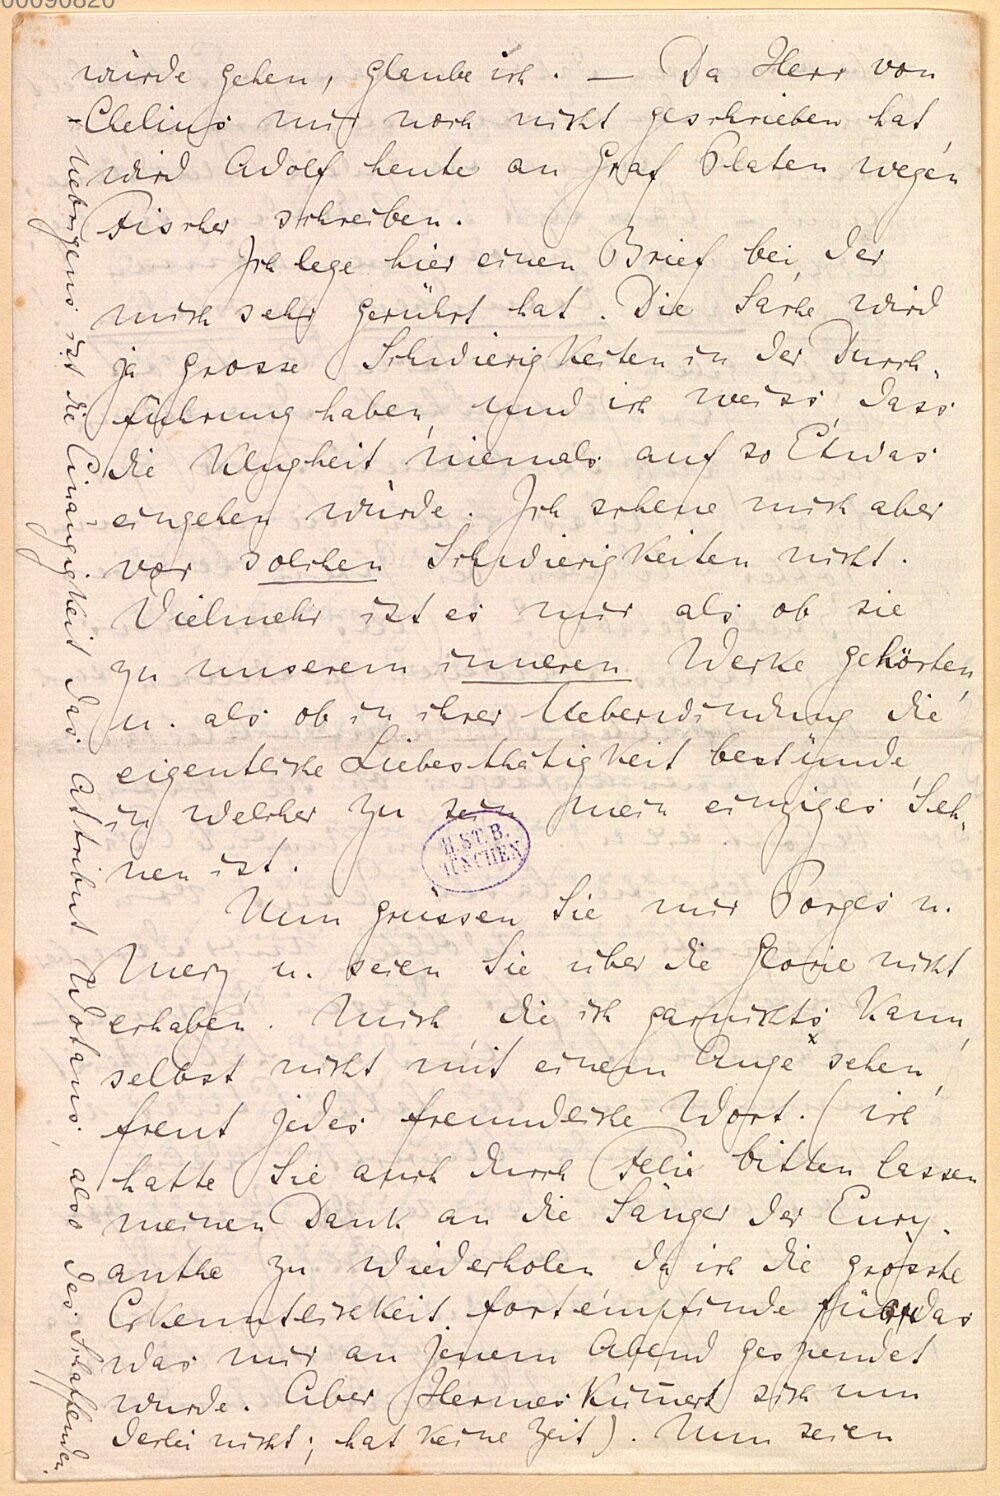 00090820
würde gehen, glaube ich. — Da Herr von
Chelius mir noch nicht geschrieben hat,
wird Adolf heute an Graf Platen wegen
Fischer schreiben.
Ich lege hier einen Brief bei, der
mich sehr gerührt hat. Die Sache wird
ja grosse Schwierigkeiten in der Durch-
führung haben, und ich weiss, dass
die Klugheit niemals auf so Etwas
eingehen würde. Ich scheue mich aber
vor solchen Schwierigkeiten nicht.
Vielmehr ist es mir als ob sie
zu unserem inneren Werke gehörten,
u. als ob in ihrer Ueberwindung die
eigentliche Liebesthätigkeit bestünde,
in welcher zu sein mein einziges Seh-
nen ist.
H.ST.B.
MÜNCHEN
Nun grüssen Sie mir Porges u.
Merz, u. seien Sie über die Glorie nicht
erhaben. Mich, die ich garnichts kann,
selbst nicht mit einem Auge x sehen,
freut jedes freundliche Wort. (ich
hatte Sie auch durch Felix bitten lassen
meinen Dank an die Sänger der Eury-
anthe zu wiederholen da ich die grösste
Erkenntlichkeit fortempfinde für das
was mir an jenem Abend gespendet
wurde. Aber Hermes kümert sich um
derlei nicht; hat keine Zeit). Nun seien
x Uebrigens ist die Einäugigkeit das Attribut Wotans, also des Schaffenden.